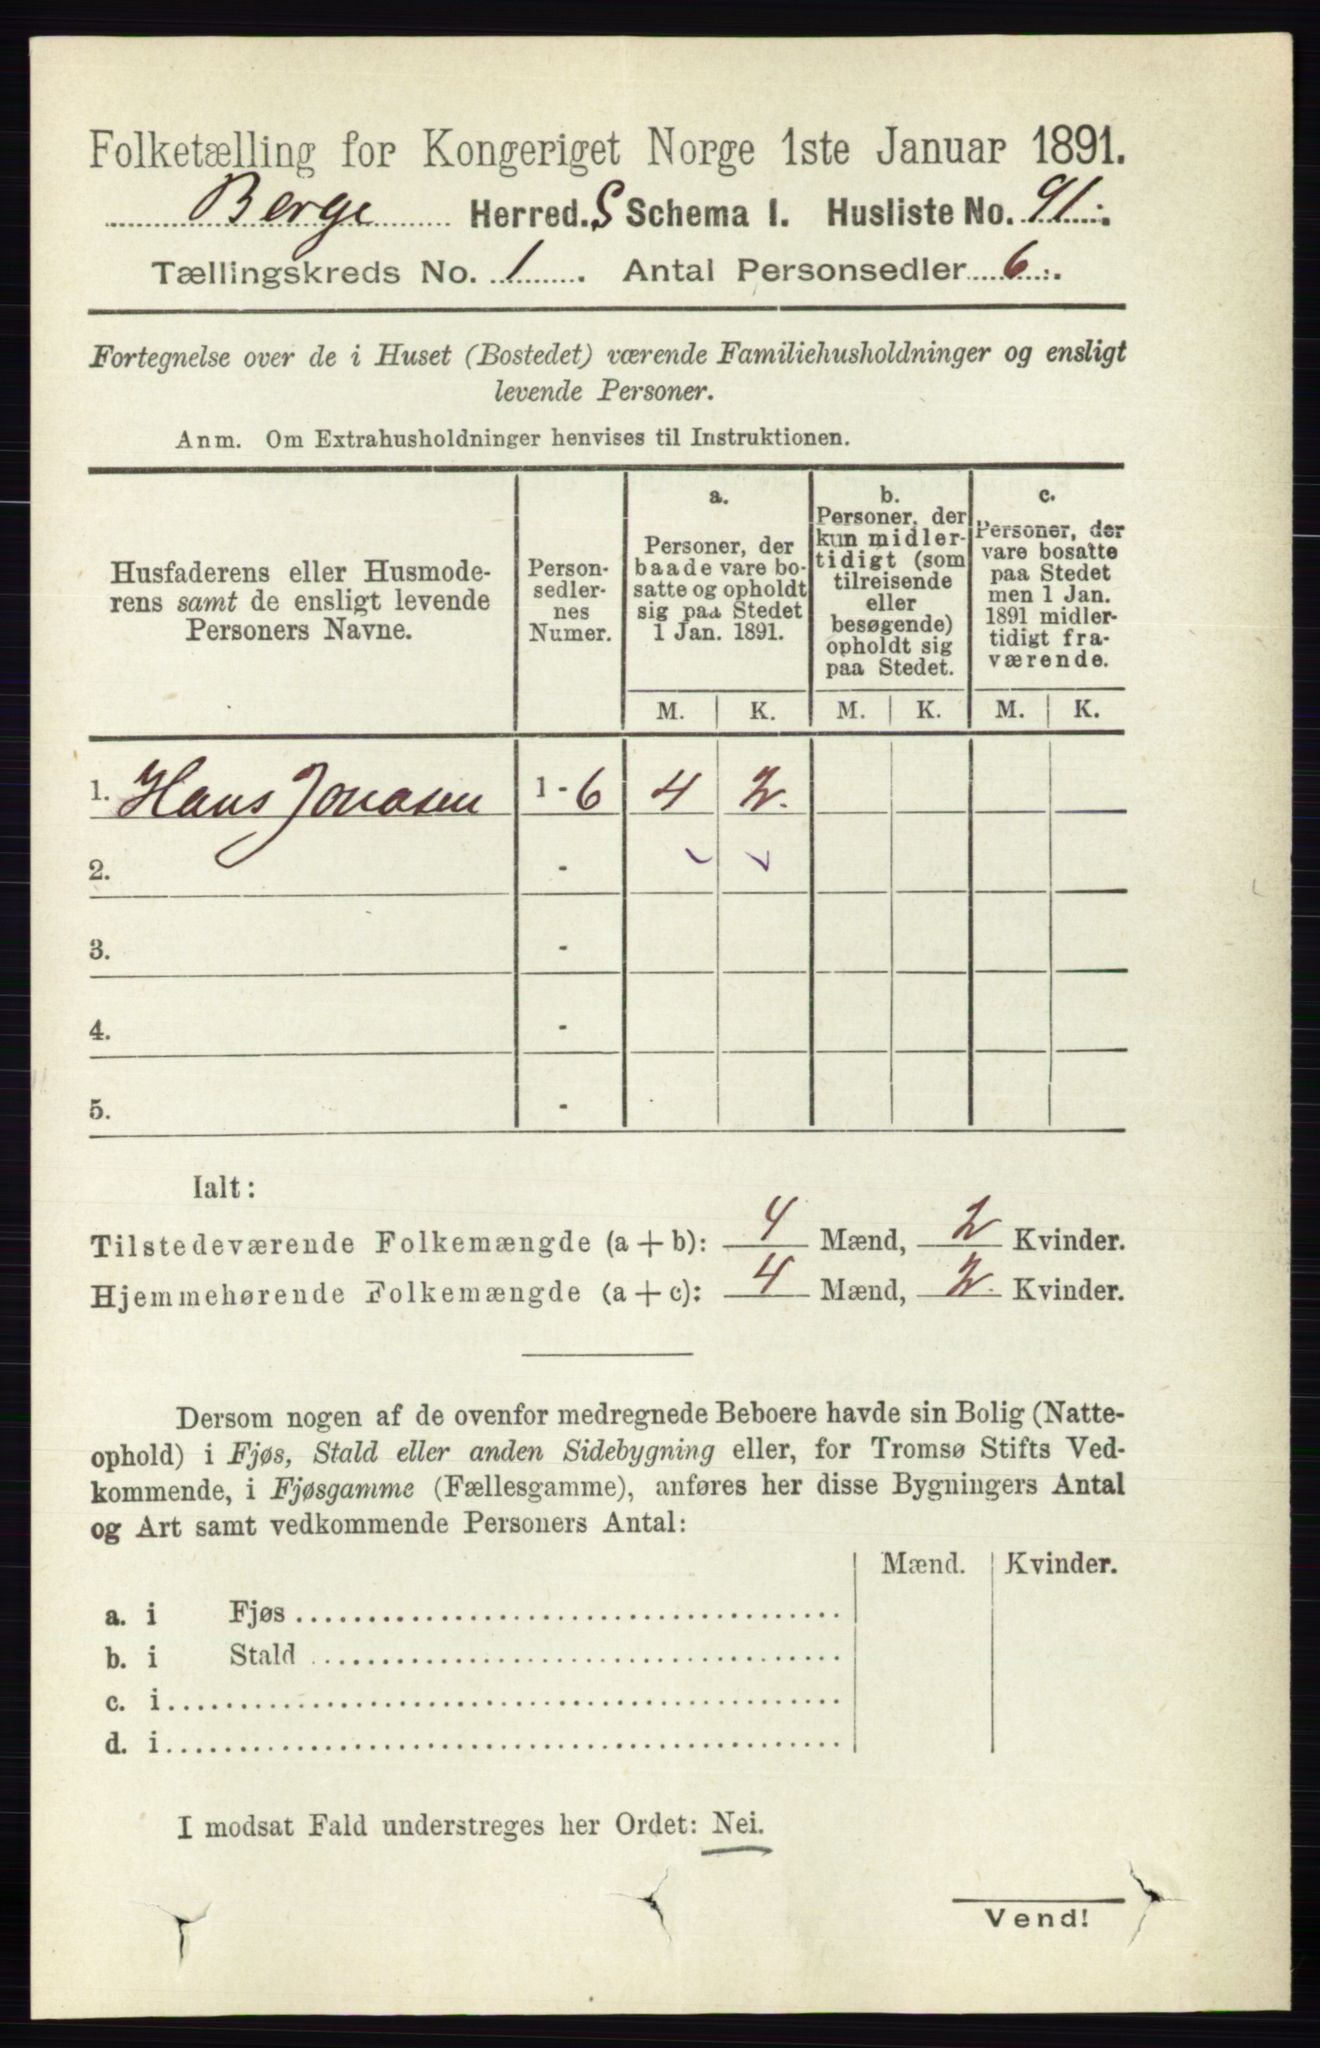 Folketælling for Kongeriget Norge 1ste Januar 1891.
Berge Herred. S Schema I. Husliste No. 91.
Tællingskreds No. 1. Antal Personsedler 6.
Fortegnelse over de i Huset (Bostedet) værende Familiehusholdninger og ensligt
levende Personer.
Anm. Om Extrahusholdninger henvises til Instruktionen.
Husfaderens eller Husmode-
rens samt de ensligt levende
Personers Navne.
Person-
sedler-
nes
Numer.
a.
Personer, der
baade vare bo-
satte og opholdt
sig paa Stedet
1 Jan. 1891.
b.
Personer, der
kun midler-
tidigt (som
tilreisende
eller
besøgende)
opholdt sig
paa Stedet.
c.
Personer, der
vare bosatte
paa Stedet
men 1 Jan.
1891 midler-
tidigt fra-
værende.
M. K. M. K. M. K.
1. Hans Jonasen 1 - 6 4 2.
2. -
3. -
4. -
5. -
Ialt:
Tilstedeværende Folkemængde (a + b): 4 Mænd, 2 Kvinder.
Hjemmehørende Folkemængde (a + c): 4 Mænd, 2. Kvinder.
Dersom nogen af de ovenfor medregnede Beboere havde sin Bolig (Natte-
ophold) i Fjøs, Stald eller anden Sidebygning eller, for Tromsø Stifts Ved-
kommende, i Fjøsgamme (Fællesgamme), anføres her disse Bygningers Antal
og Art samt vedkommende Personers Antal:
Mænd. Kvinder.
a. i Fjøs
b. i Stald
c. i
d. i
I modsat Fald understreges her Ordet: Nei.
Vend!